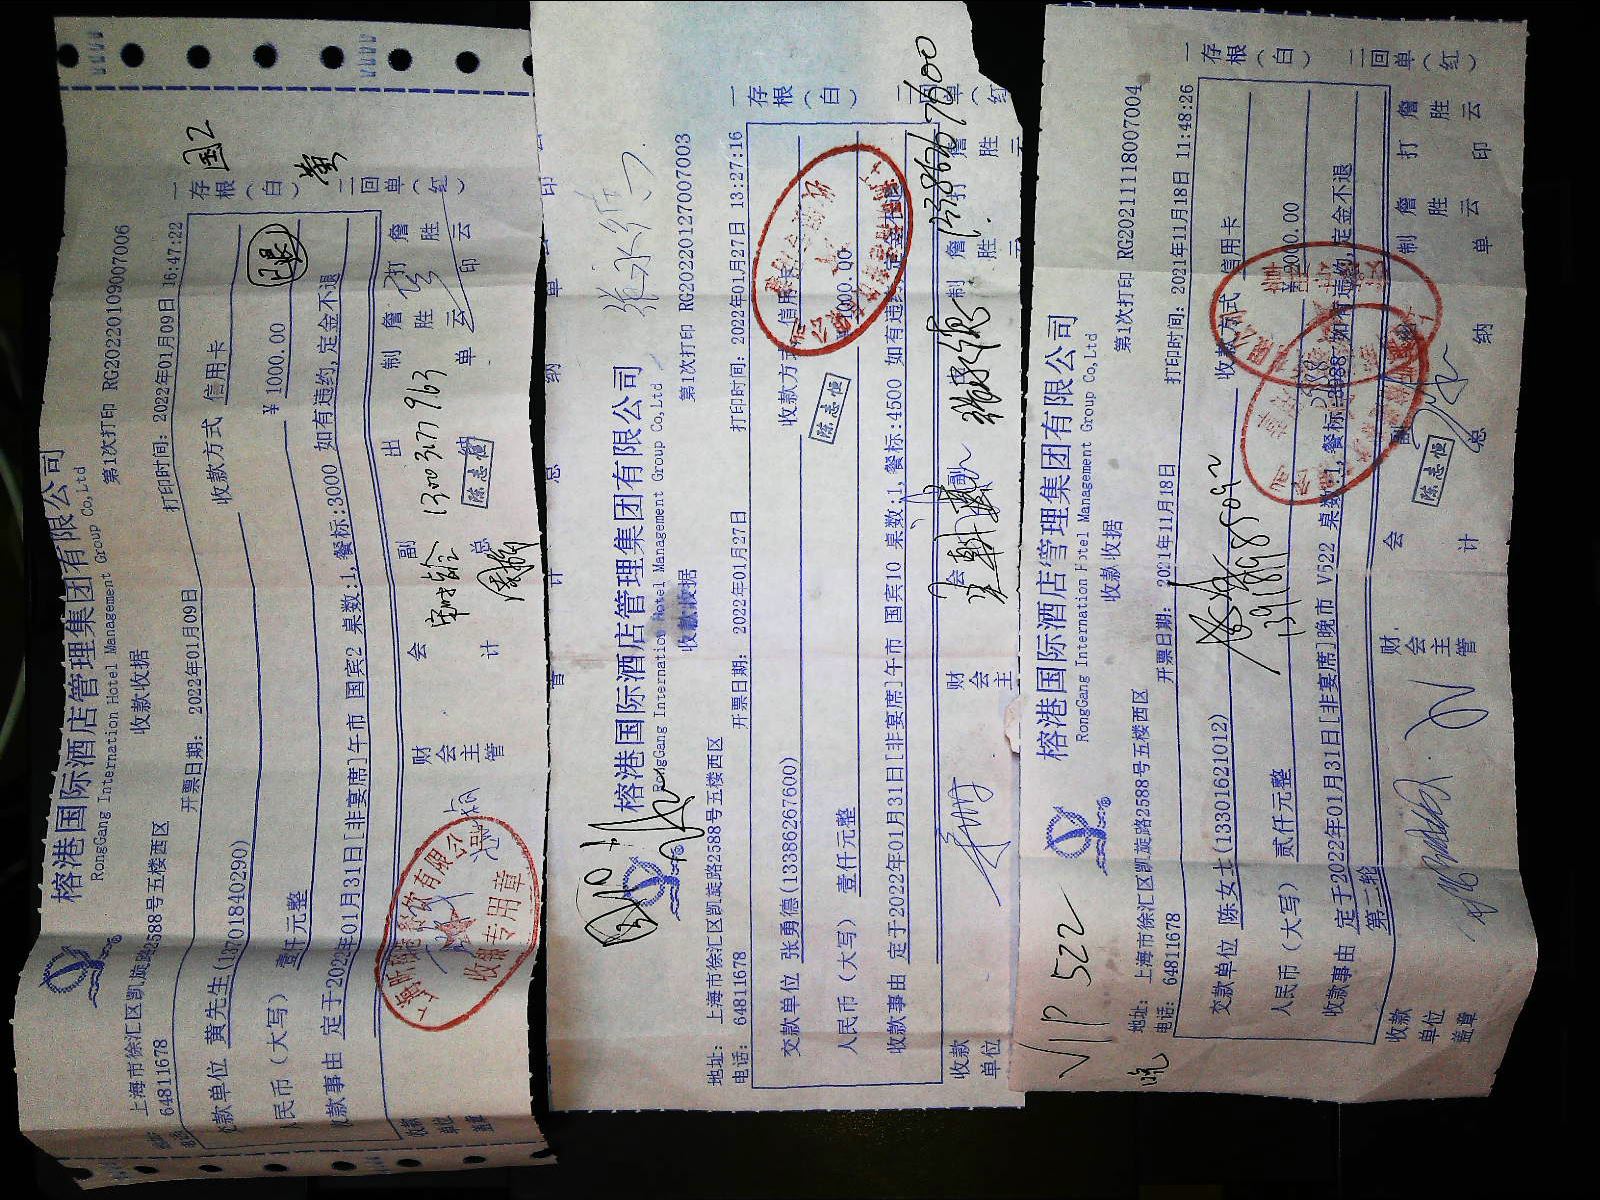 榕港国际酒店管理集团有限公司
RongGang International Hotel Management Group Co,Ltd
收款收据
第1次打印 RG20220109007006
上海市徐汇区凯旋路2588号五楼西区
64811678
开票日期: 2022年01月09日
打印时间: 2022年01月09日 16:47:22
款单位 黄先生(13701840290)
收款方式 信用卡
民币(大写) 壹仟元整
¥ 1000.00
款事由 定于2022年01月31日[非宴席]午市 国宾2 桌数:1,餐标:3000 如有违约,定金不退
一存根(白)
二回单(红)
财会主管
会计
副总
出
制单
詹胜云
打印
詹胜云
陈志恒
收款专用章
国2
榕港国际酒店管理集团有限公司
RongGang International Hotel Management Group Co,Ltd
收款收据
第1次打印 RG20220127007003
地址: 上海市徐汇区凯旋路2588号五楼西区
电话: 64811678
开票日期: 2022年01月27日
打印时间: 2022年01月27日 13:27:16
交款单位 张勇德(13386267600)
收款方式 信用卡
人民币(大写) 壹仟元整
1000.00
收款事由 定于2022年01月31日[非宴席]午市 国宾10 桌数:1,餐标:4500 如有违约,定金不退
一存根(白)
二回单(红
收款单位
财会主
会
副
制
詹胜云
打
詹胜云
陈志恒
13386267600
国10
榕港国际酒店管理集团有限公司
RongGang International Hotel Management Group Co,Ltd
收款收据
第1次打印 RG20211118007004
地址: 上海市徐汇区凯旋路2588号五楼西区
电话: 64811678
开票日期: 2021年11月18日
打印时间: 2021年11月18日 11:48:26
交款单位 陈女士(13301621012)
收款方式 信用卡
人民币(大写) 贰仟元整
¥ 2000.00
收款事由 定于2022年01月31日[非宴席]晚市 V522 桌数:1,餐标:3988 如有违约,定金不退
第二轮
一存根(白)
二回单(红)
收款单位盖章
财会主管
会计
副总
纳
制单
詹胜云
打印
詹胜云
陈志恒
VIP 522
晚